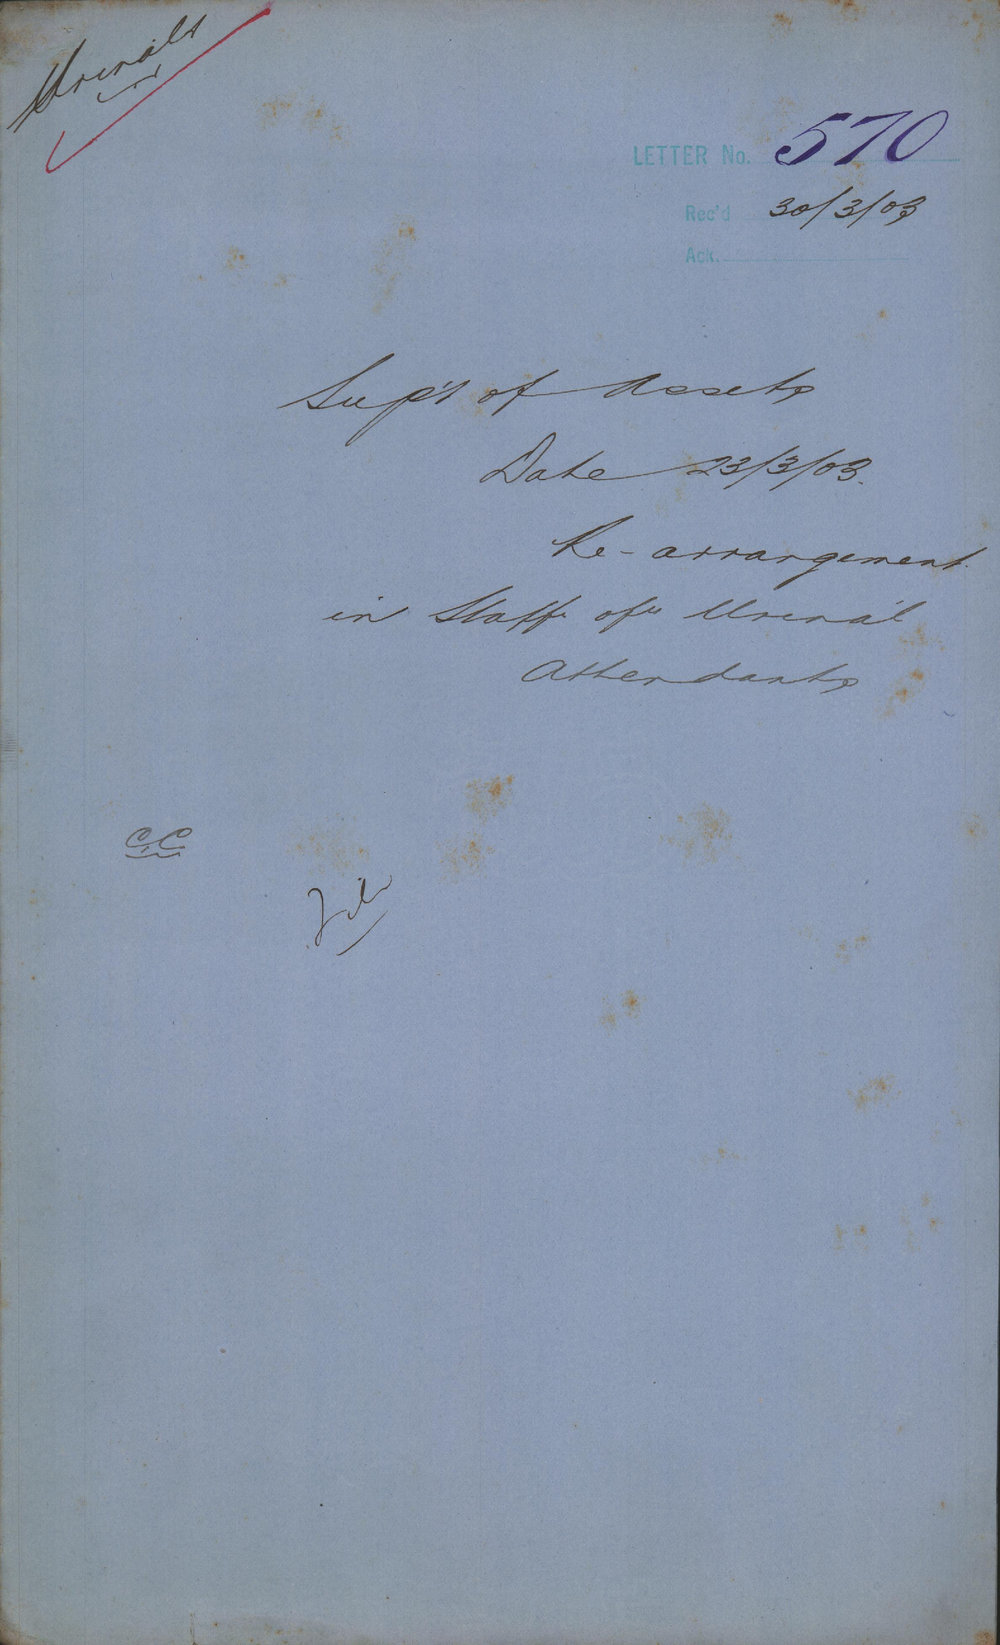 Urinals
LETTER No. 570
Rec'd 30/3/03
Ack.
Sup't of Assets
Date 23/3/03.
Re-arrangement
in Staff of Urinal
Attendants
CC
File